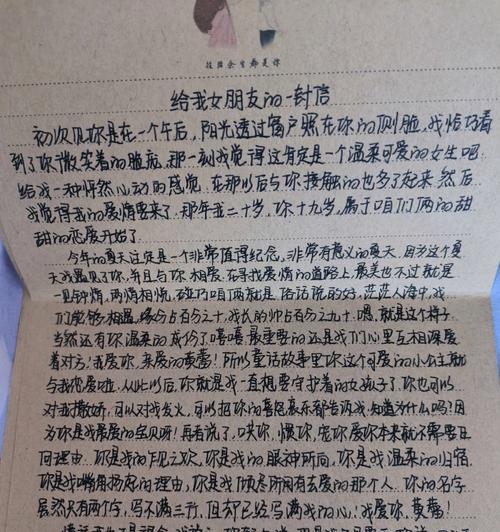 往后余生都是你
给我女朋友的一封信
初次见你是在一个午后,阳光透过窗户照在你的侧脸,我恰巧看
到了你微笑着的脸庞,那一刻我觉得这肯定是一个温柔可爱的女生吧
给我一种怦然心动的感觉,在那以后与你接触的也多了起来,然后
我觉得我的爱情要来了,那年我二十岁,你十九岁,属于咱们俩的甜
甜的恋爱开始了
今年的夏天注定是一个非常值得纪念,非常有意义的夏天,因为这个夏
天我遇见了你,并且与你相爱,在寻找爱情的道路上,最美也不过就是
一见钟情,两情相悦,碰巧咱俩就是,俗话说的好,茫茫人海中,我
们能够相遇,缘分占百分之十,我长的帅占百分之九十,嗯,就是这样子
当然还有你温柔的成份了嘻嘻,最重要的还是我们心里互相深爱
着对方!我爱你,亲爱的黄莺!所以童话故事里你这个可爱的小公主就
与我恋爱啦,从此以后,你就是我一直想要守护着的女孩子了,你也可以
对我撒娇,可以对我发火,可以把你的喜怒哀乐都告诉我,知道为什么吗?因
为你是我最爱的宝贝呀!再者说了,哄你,惯你,宠你,爱你本来就不需要任
何理由,你是我的作见之欢,你是我的眼神所向,你是我温柔的归宿
你是我嘴角扬起的理由,你是我倾尽所有去爱的那个人,你的名字
虽然只有两个字,写不满三行,但却已经写满了我的心!我爱你,黄莺!